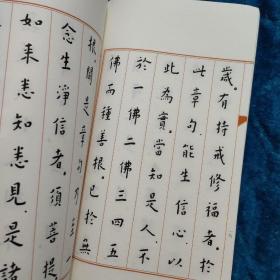 歲。有持戒修福者。於
此章句。能生信心。以
此為實。當知是人。不
於一佛二佛三四五
佛而種善根。已於無
根。聞是章句乃至一
念生淨信者。須菩提
如来悉知悉見。是諸